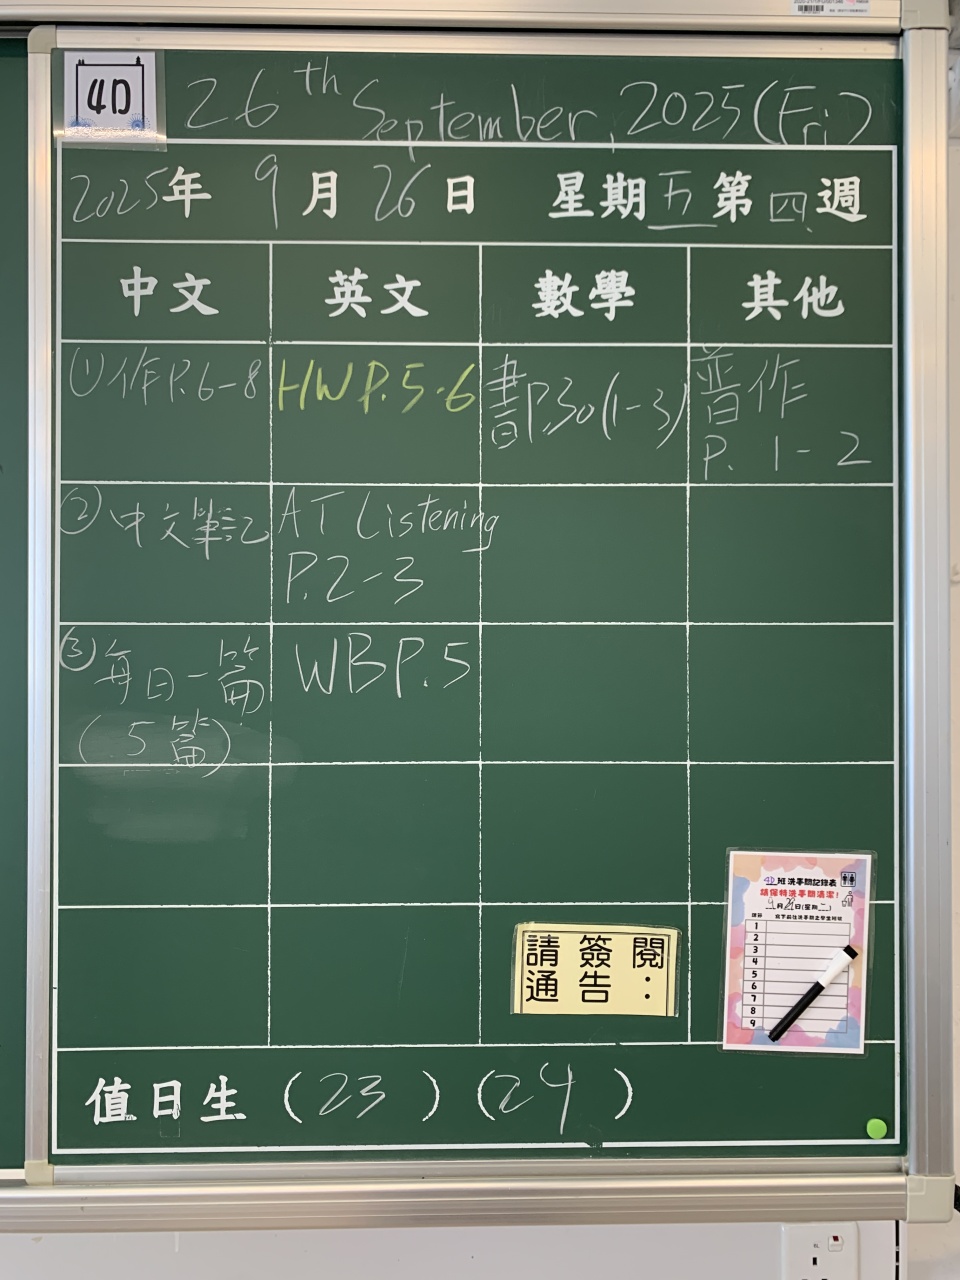 4D
26th September, 2025 (Fri)
2025年 9月 26日 星期五 第四週
中文 英文 數學 其他
①作P.6-8
HW P.5-6
書P.30(1-3)
普作
P. 1-2
②中文筆記
AT Listening
P.2-3
③每日一篇
(5篇)
WB P.5
請簽閱
通告：
4D班洗手間記錄表
請保持洗手間清潔!
1
2
3
4
5
6
7
8
9
值日生 (23) (24)